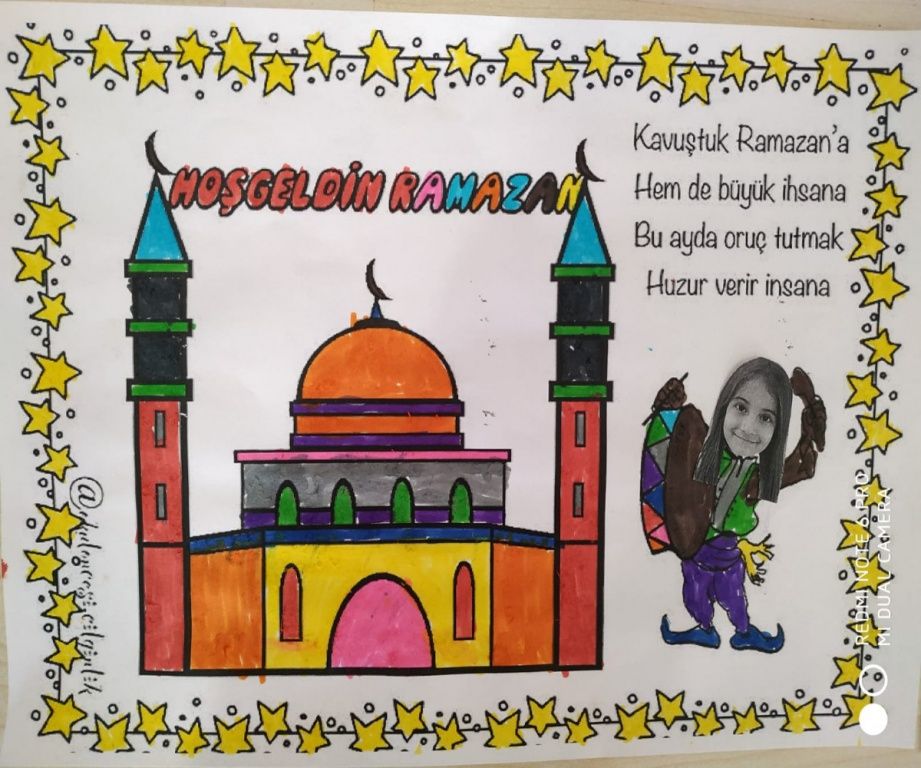 HOŞGELDİN RAMAZAN
Kavuştuk Ramazan'a
Hem de büyük ihsana
Bu ayda oruç tutmak
Huzur verir insana
REDMI NOTE 6 PRO
MI DUAL CAMERA